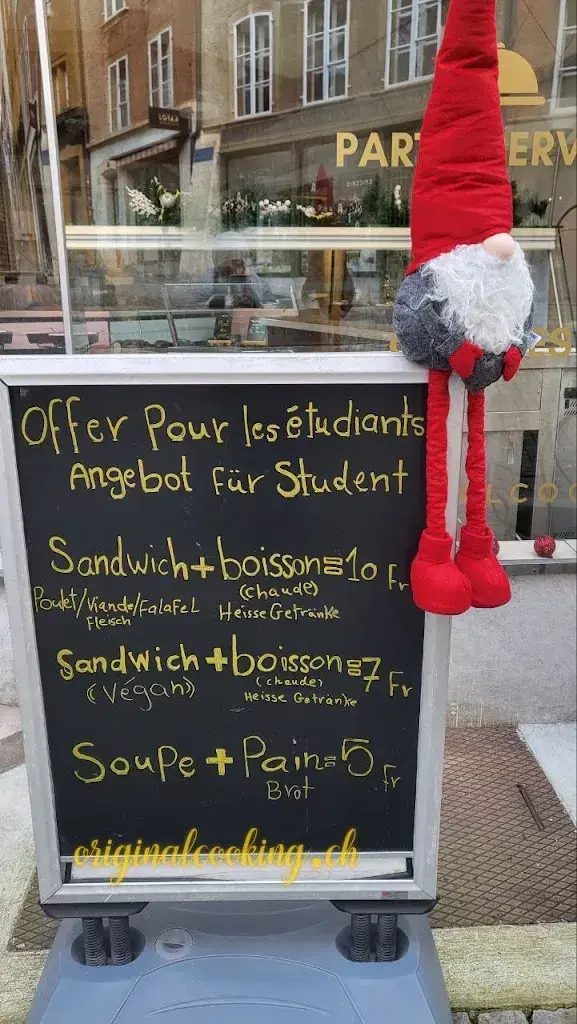 PARTY SERV
ALCOO
Offer Pour les étudiants
Angebot für Student
Sandwich + boisson = 10 Fr
(chaude)
Poulet/Viande/Falafel Heisse Getränke
Fleisch
Sandwich + boisson = 7 Fr
(Végan) (chaude)
Heisse Getränke
Soupe + Pain = 5 Fr
Brot
originalcooking.ch